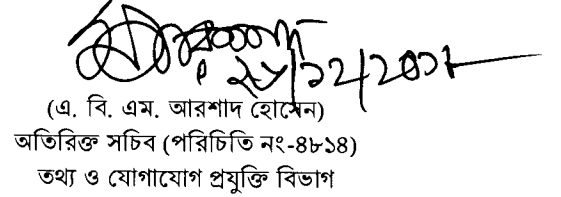 (এ. বি. এম. আরশাদ হোসেন)
অতিরিক্ত সচিব (পরিচিতি নং-৪৮১৪)
তথ্য ও যোগাযোগ প্রযুক্তি বিভাগ